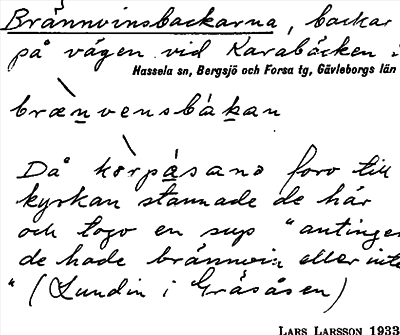 Brännvinsbackarna, backar
på vägen vid Karabäcken i
Hassela sn, Bergsjö och Forsa tg, Gävleborgs län
brænvensbákan
Då kørpásana foro till
kyrkan stannade de här
och togo en sup "antingen
de hade brännvin eller inte
" (Lundin i Gråsåsen)
LARS LARSSON 1933